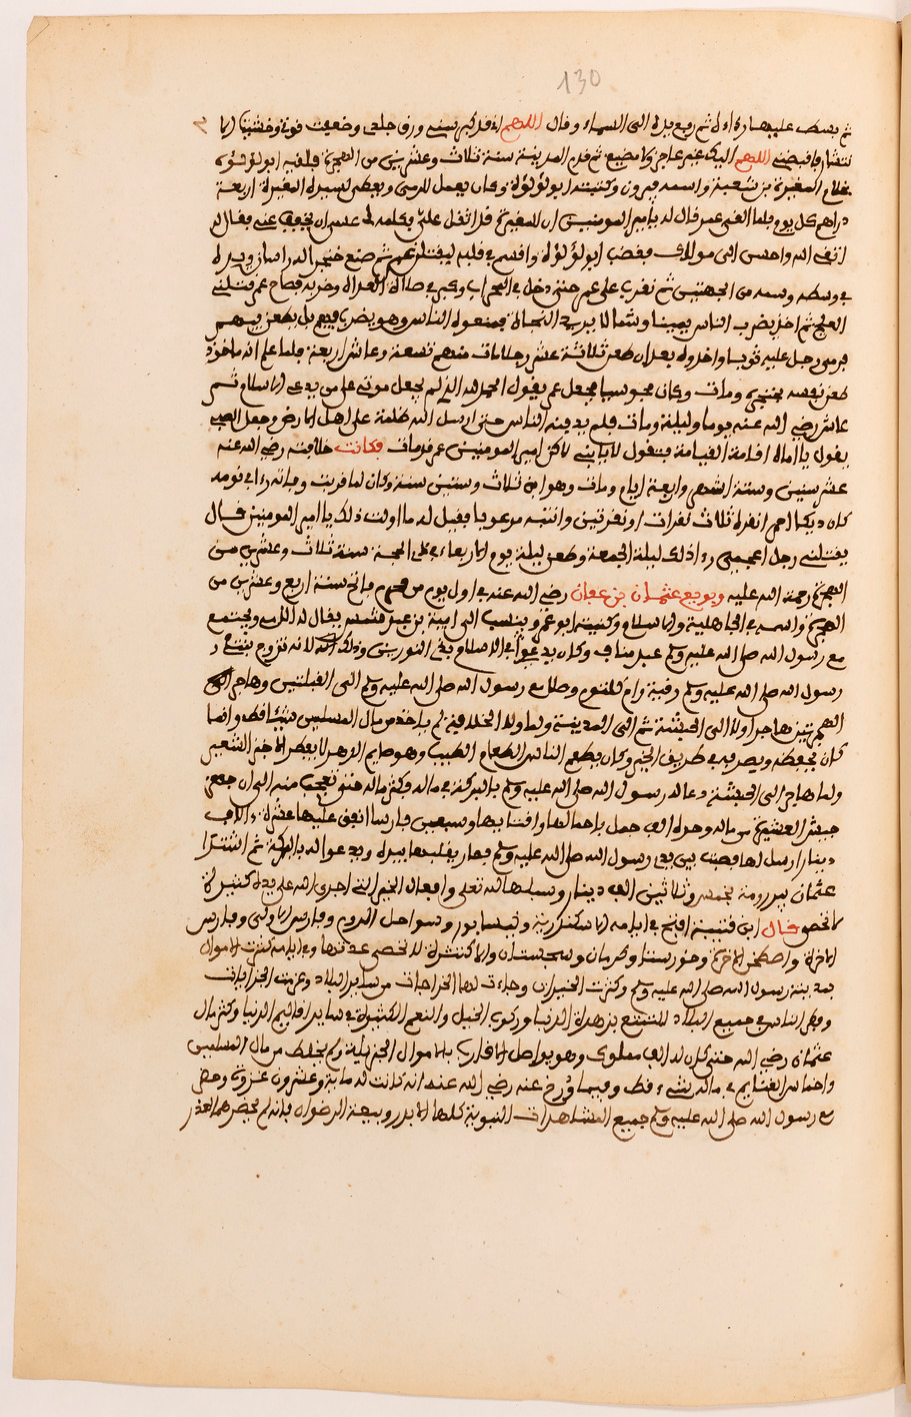 130
ثم بسط عليها رداءه ثم رفع يده الى السماء وقال اللهم انه قد كبر سنى ورق جلدى وضعفت قوتى وخشيت الا
نتشار فاقبضنى اللهم اليك غير عاجز ولا مضيع ثم قدم المدينة سنة ثلاث وعشرين من الهجرة فلقيه ابو لؤلؤة
غلام المغيرة بن شعبة واسمه فيرون وكنيته ابو لؤلؤة وكان يعمل للرحى ويعطى لسيده المغيرة اربعة
دراهم كل يوم فلما لقى عمر قال له يا امير المومنين ان المغيرة قد اثقل على فكلمه لى عسى ان يخفف عنى فقال له
اتق الله واحسن الى مولاك فغضب ابو لؤلؤة واقسم فى قلبه ليقتلن عمر ثم صنع خنجرا له راسان ويده
فى وسطه وسمه من الجهتين ثم تقرب على عمر حتى دخل فى المحراب وكبر فى صلاة الغداة وضربه فصاح عمر قتلنى
العلج ثم اخذ يضرب الناس يمينا وشمالا يريد النجاة فمنعوه الناس وهو يضرب فيهم بل يطعن فيهم
فرمى رجل عليه ثوبا واخذوه بعد ان طعن ثلاثة عشر رجلا مات منهم تسعة وعاش اربعة فلما علم انه ماخوذ
طعن نفسه بخنجره ومات وكان مجوسيا فجعل عمر يقول الحمد لله الذى لم يجعل موتى على من يدعى الاسلام ثم
عاش رضى الله عنه يوما وليلة ومات فلم يدفنه الناس حتى ارسل الله ظلمة على اهل الارض وجعل الصبى
يقول يا اماه اقامة القيامة فتقول لا يا بنى لاكن امير المومنين عمر قد مات فكانت خلافته رضى الله عنه
عشر سنين وستة اشهر واربعة ايام ومات وهو ابن ثلاث وستين سنة وكان لما قربت وفاته رءا فى نومه
كان ديكا احمر انقره ثلاث نقرات او نقرتين وانتبه مرعوبا فقيل له ما اولت ذلك يا امير المومنين قال
يقتلنى رجل اعجمى رءا ذلك ليلة الجمعة وطعن ليلة يوم الاربعاء فى ذى الحجة سنة ثلاث وعشرين من
الهجرة رحمة الله عليه وبويع عثمان بن عفان رضى الله عنه فى اول يوم من محرم فاتح سنة اربع وعشرين من
الهجرة واسمه فى الجاهلية والاسلام وكنيته ابو عمرو وينسب الى امية بن عبد شمس يقال له الاموى ويجتمع
مع رسول الله صلى الله عليه وسلم فى عبد مناف وكان يدعوا فى الاسلام بذى النورين وذلك لانه تزوج ببنتى
رسول الله صلى الله عليه وسلم رقية وام كلثوم وصلا مع رسول الله صلى الله عليه وسلم الى القبلتين وهاجر
الهجرتين هاجر اولا الى الحبشة ثم الى المدينة ولما ولا الخلافة لم ياخذ من مال المسلمين شيئا قط وانما
كان يحفظه ويصرفه فى طريق الخير وكان يطعم الناس الطعام الطيب وهو صايم الدهر لا يفطر الا خبز الشعير
ولما هاجر الى الحبشة دعا له رسول الله صلى الله عليه وسلم بالبركة فى ماله فكثر ماله حتى تعجب منه الى ان جهز
جيش العسرة من ماله وحده الف حمل باحمالها واقتابها وسبعين فارسا انفق عليها عشرة ءالاف
دينار ارسل لها فصبت بين يدى رسول الله صلى الله عليه وسلم فصار يقلبها بيده ويدعوا له بالبركة ثم اشترا
عثمان بير رومة بخمسة وثلاثين الف دينار وسبلها لله تعلى وافعال الخير التى اجرى الله على يده كثيرة
لا تحصى قال ابن قتيبة افتح فى ايامه الاسكندرية ونيسابور وسواحل الروم وفارس الاولى وفارس
الاخرة واصطخر الاخرة وخورستا وكرمان وسجستان والاكثرة لا تحصى عددها وفى ايامه كثرت الاموال
بمدينة رسول الله صلى الله عليه وسلم وكثرت الخيرات وجاءت لها الخراجات من ساير البلاد وعزمت الخزايات
وظل الناس فى جميع البلاد للتمتع بزهرة الدنيا وركوب الخيل والنعم الكثيرة فى ساير اقاليم الدنيا وكثر مال
عثمان رضى الله حتى كان له الف مملوك وهو يواصل الاقارب بالاموال الجزيلة ولم يخلط من مال المسلمين
واخماس الغنايم فى ماله بشىء قط وفيما ؤرخ عنه رضى الله عنه انه كانت له ماية وعشرون غزوة وحضر
مع رسول الله صلى الله عليه وسلم جميع المشاهدات النبوية كلها الا بدر وبيعة الرضوان فانه لم يحضرهما لعذر